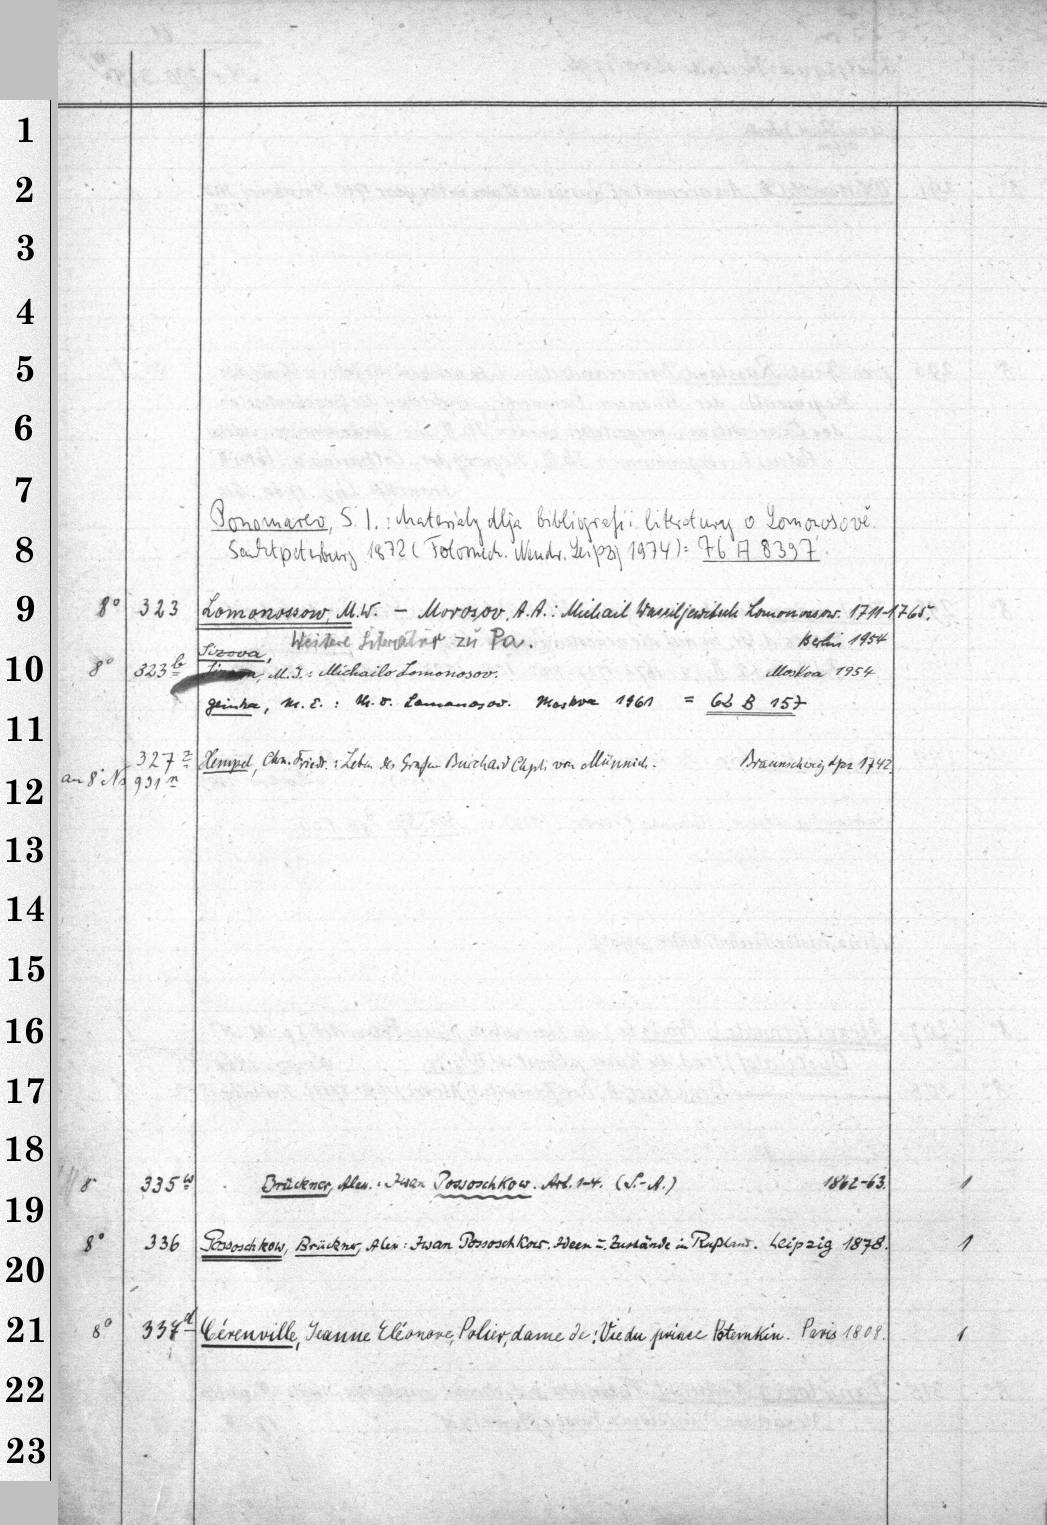 1
2
3
4
5
6
7
Ponomarev, S. I.: Materialy dlja bibliografii literatury o Lomonosově.
8
Sanktpeterburg 1872 (Fotomech. Neudr. Leipzig 1974) = 76 A 8397.
9
8° 323 Lomonossow, M.W. – Morosov, A.A.: Michail Wassiljewitsch Lomonossow. 1711-1765.
Weitere Literatur zu Pa. Berlin 1954
Sizova,
10
8° 323 b M.I.: Michailo Lomonosov. Moskva 1954
M. E.: M. V. Lomonosov. Moskva 1961 = 62 B 157
11
327 z Hempel, Chn. Friedr.: Leben des Grafen Burchard Chph. von Münnich. Braunschweig Lpz 1742
an 8° No 931 n
12
13
14
15
16
17
18
8° 335 w Brückner, Alex.: Iwan Possoschkow. Art. 1-4. (S.-A.) 1862-63. 1
19
8° 336 Possoschkow, Brückner, Alex: Iwan Possoschkow. Ideen u. Zustände in Rußland. Leipzig 1878. 1
20
21
8° 337 d Cérenville, Jeanne Eléonore, Polier, dame de: Vie du prince Potemkin. Paris 1808. 1
22
23